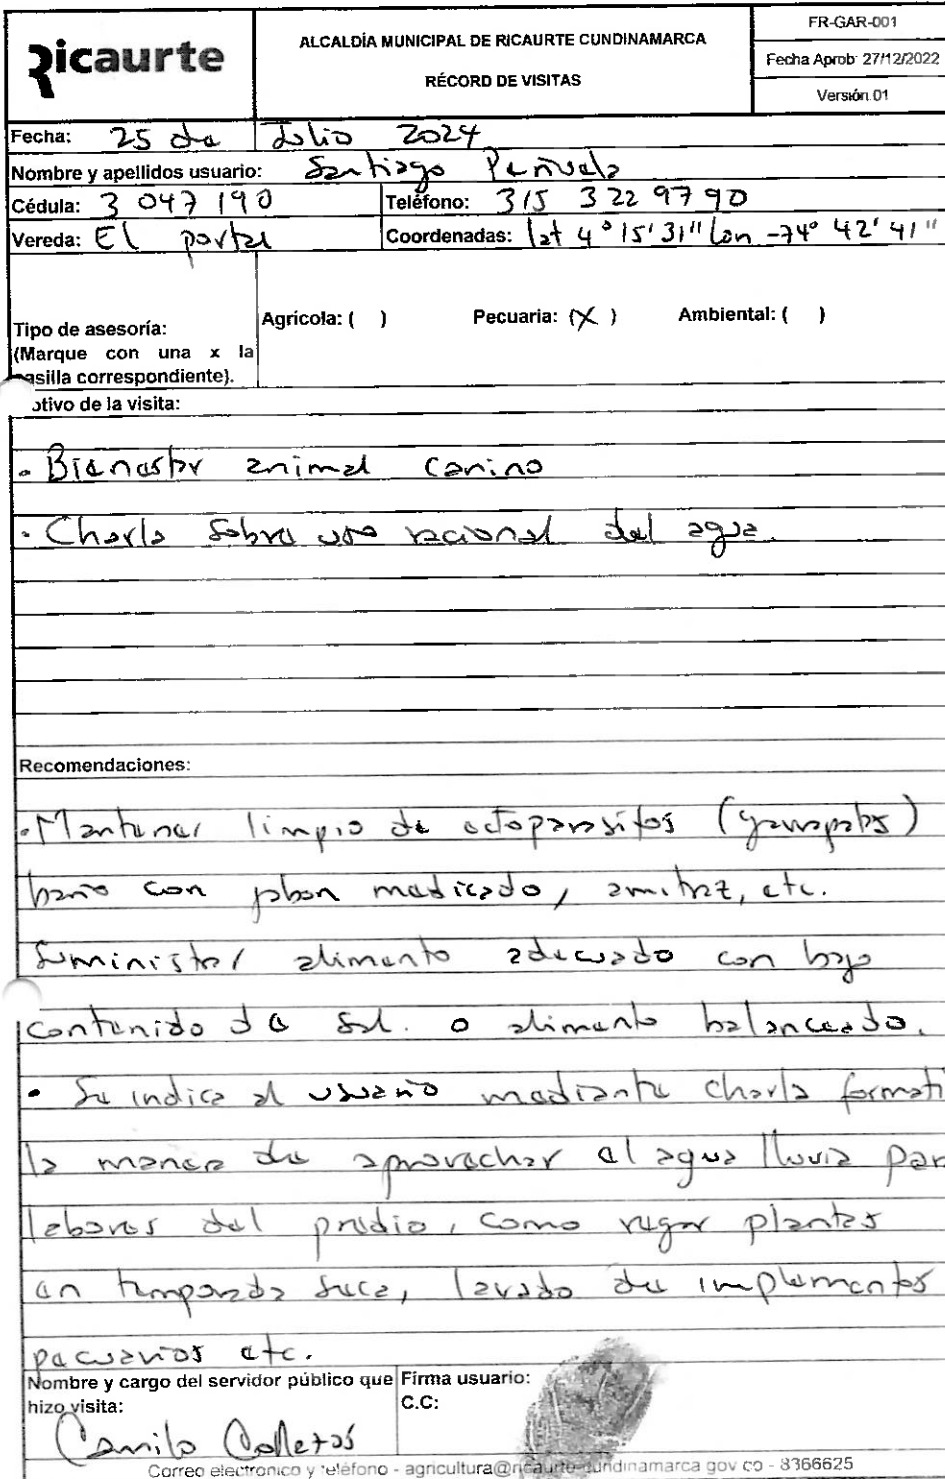 Ricaurte
ALCALDÍA MUNICIPAL DE RICAURTE CUNDINAMARCA
RÉCORD DE VISITAS
FR-GAR-001
Fecha Aprob: 27/12/2022
Versión 01
Fecha: 25 de Julio 2024
Nombre y apellidos usuario: Santiago Peñuela
Cédula: 3 047 190 Teléfono: 315 322 9790
Vereda: El portal Coordenadas: lat 4° 15' 31" lon -74° 42' 41"
Tipo de asesoría:
(Marque con una x la
casilla correspondiente).
Agrícola: ( ) Pecuaria: (X) Ambiental: ( )
otivo de la visita:
. Bienestar animal canino
. Charla sobre uso racional del agua.
Recomendaciones:
. Mantener limpio de ectoparasitos (garrapatas)
baño con jabon medicado, amitraz, etc.
Suministrar alimento adecuado con bajo
contenido de sal. o alimento balanceado.
• Se indica al usuario mediante charla formati
la manera de aprovechar el agua lluvia par
labores del predio, como regar plantas
en temporada seca, lavado de implementos
pecuarios etc.
Nombre y cargo del servidor público que
hizo visita:
Camilo
Firma usuario:
C.C:
Correo electronico y teléfono - agricultura@ricaurte-cundinamarca gov co - 8366625